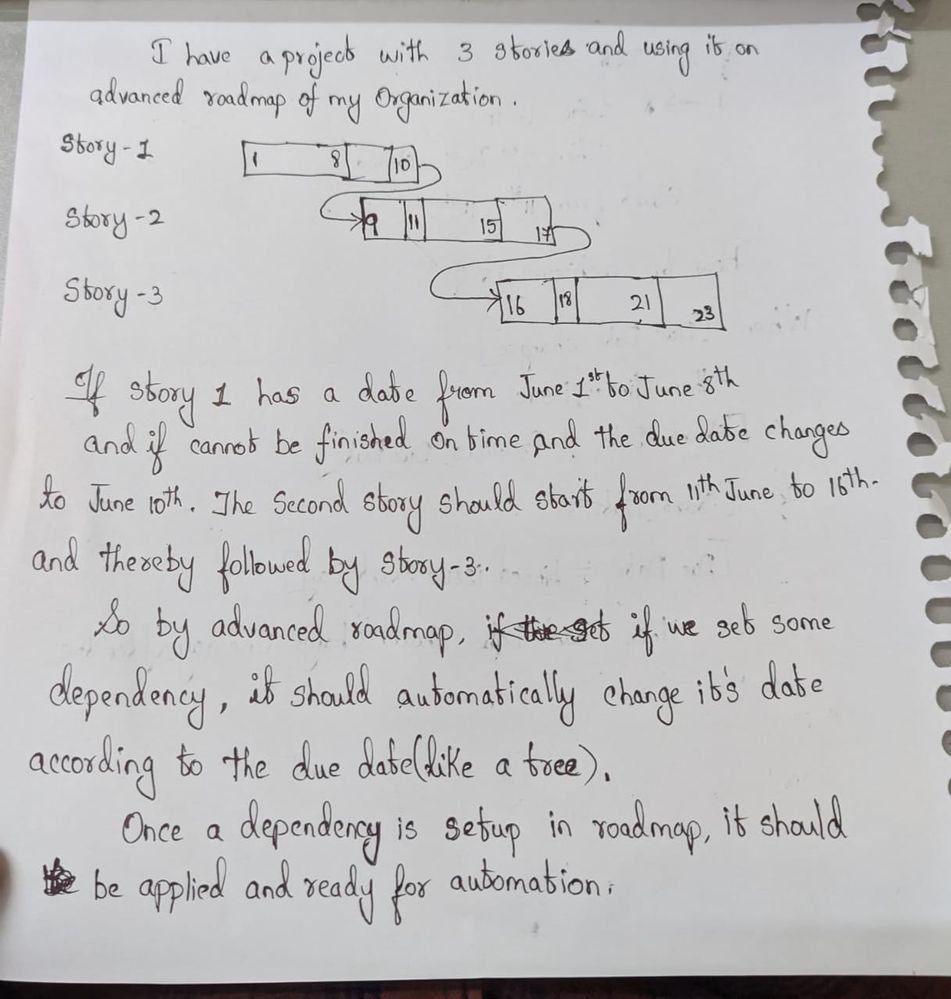 I have a project with 3 stories and using it on
advanced roadmap of my Organization.
Story-1 1 8 10
Story-2 9 11 15 17
Story-3 16 18 21 23
If story 1 has a date from June 1st to June 8th
and if cannot be finished on time and the due date changes
to June 10th. The Second story should start from 11th June to 16th.
and thereby followed by Story-3.
So by advanced roadmap, if we set some
dependency, it should automatically change it's date
according to the due date(like a tree).
Once a dependency is setup in roadmap, it should
be applied and ready for automation.